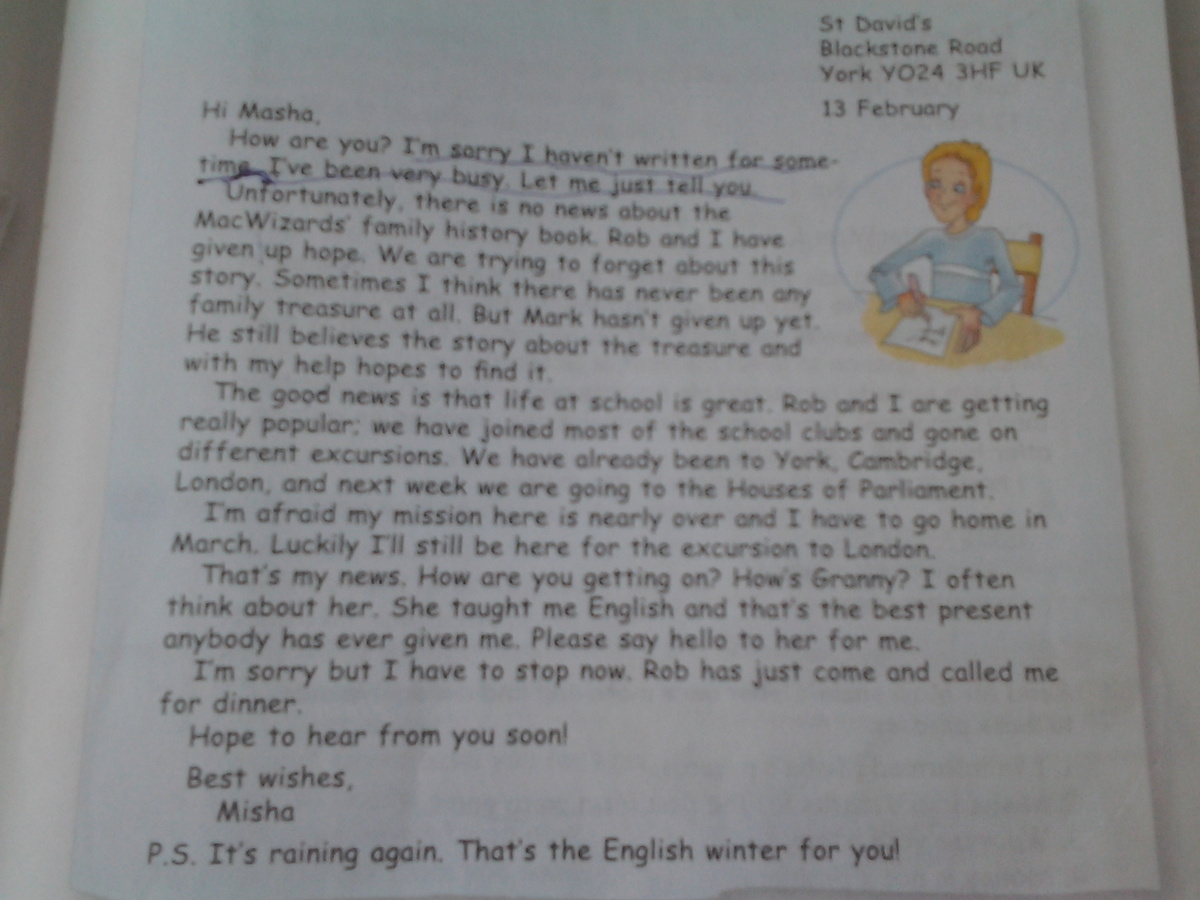 St David's
Blackstone Road
York YO24 3HF UK
13 February
Hi Masha,
How are you? I'm sorry I haven't written for some-
time. I've been very busy. Let me just tell you.
Unfortunately, there is no news about the
MacWizards' family history book. Rob and I have
given up hope. We are trying to forget about this
story. Sometimes I think there has never been any
family treasure at all. But Mark hasn't given up yet.
He still believes the story about the treasure and
with my help hopes to find it.
The good news is that life at school is great. Rob and I are getting
really popular: we have joined most of the school clubs and gone on
different excursions. We have already been to York, Cambridge,
London, and next week we are going to the Houses of Parliament.
I'm afraid my mission here is nearly over and I have to go home in
March. Luckily I'll still be here for the excursion to London.
That's my news. How are you getting on? How's Granny? I often
think about her. She taught me English and that's the best present
anybody has ever given me. Please say hello to her for me.
I'm sorry but I have to stop now. Rob has just come and called me
for dinner.
Hope to hear from you soon!
Best wishes,
Misha
P.S. It's raining again. That's the English winter for you!